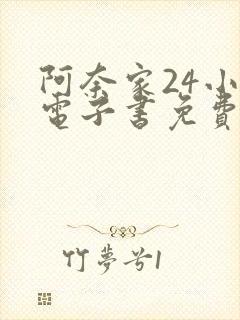 阿奈家24小
電子書免費
竹夢兮1